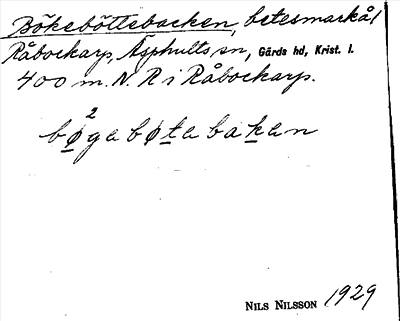 Bökeböttebacken, betesmark å l
Råbockarp, Äsphults sn, Gärds hd, Krist. l.
400 m. N. R i Råbockarp.
2
bøgabøtabakan
NILS NILSSON 1929